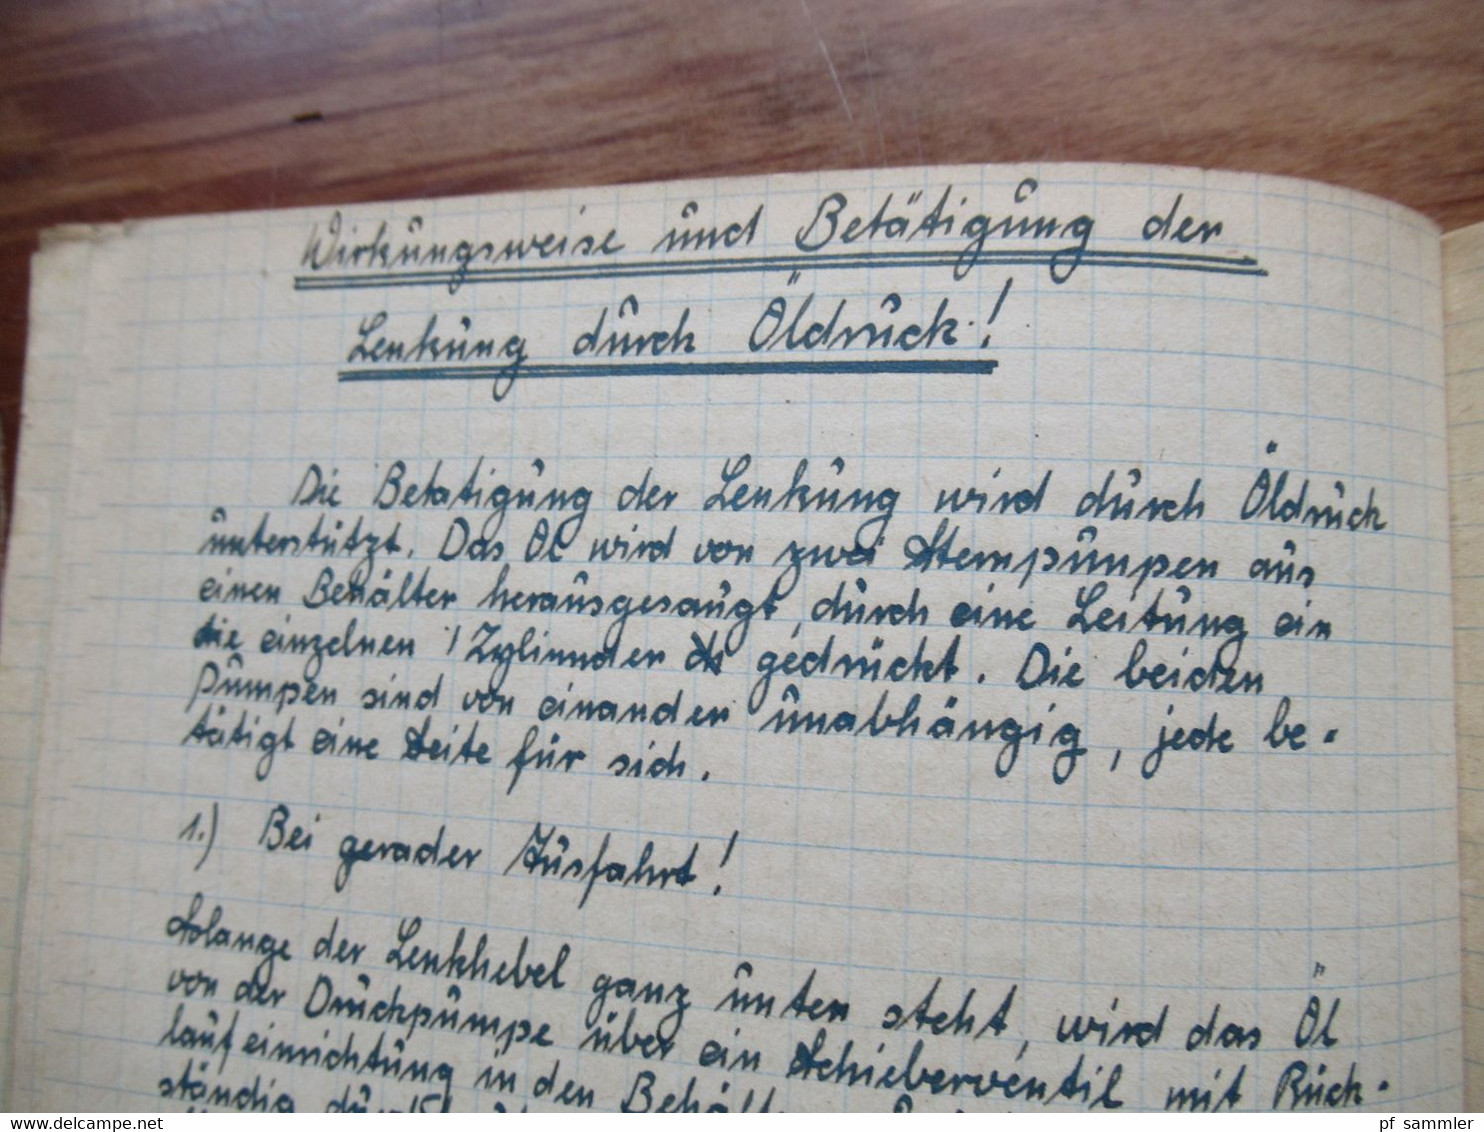 Wirkungsweise und Betätigung der
Lenkung durch Öldruck!
Die Betatigung der Lenkung wird durch Öldruck
unterstützt. Das Öl wird von zwei Stempumpen aus
einen Behälter herausgesaugt, durch eine Leitung ein
die einzelnen Zylinnder gedrückt. Die beiden
Pumpen sind von einander unabhängig, jede be-
tätigt eine Seite für sich.
1.) Bei gerader Ausfahrt!
Solange der Lenkhebel ganz unten steht, wird das Öl
von der Druckpumpe über ein Schieberventil mit Rück-
laufeinrichtung in den
ständig
www.delcampe.net
pf_sammler